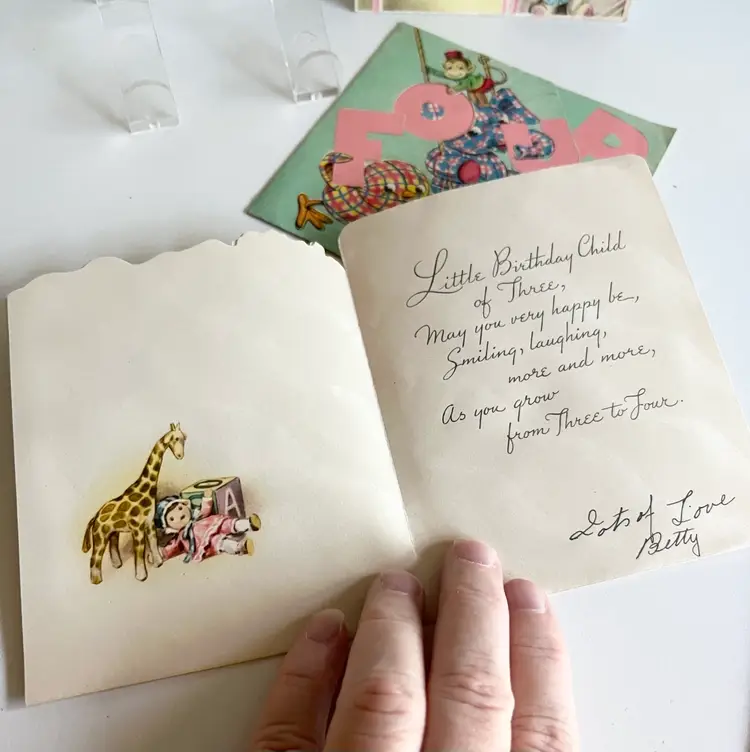 FOUR
Little Birthday Child
of Three,
May you very happy be,
Smiling, laughing,
more and more,
As you grow
from Three to Four.
Lots of Love
Betty
A